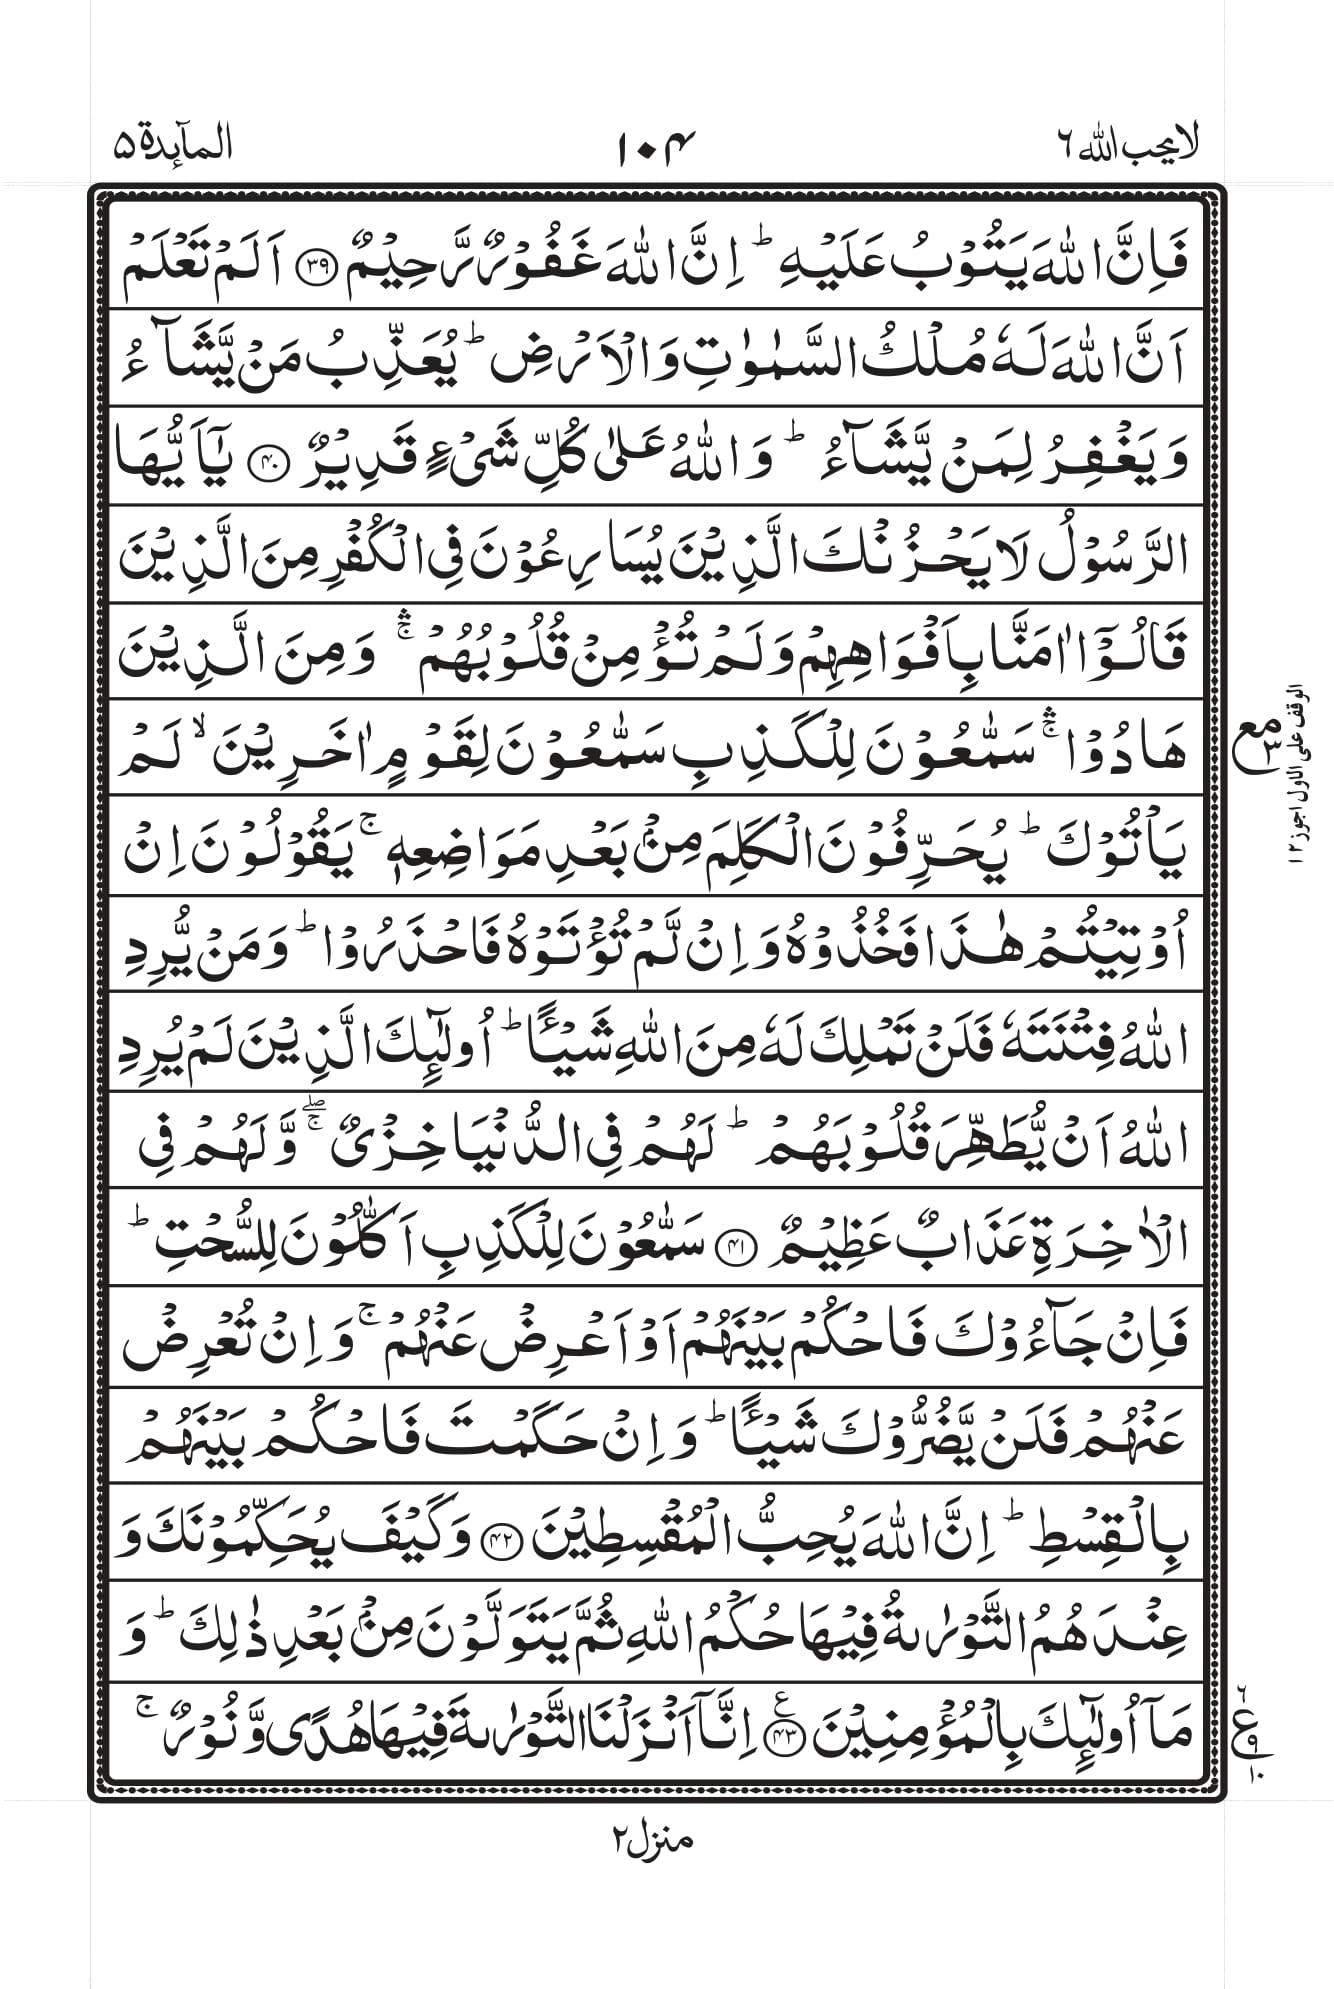 لا يحب الله ٦
١٠٤
المآئدة ٥
فَاِنَّ اللّٰهَ يَتُوْبُ عَلَيْهِ ؕ اِنَّ اللّٰهَ غَفُوْرٌ رَّحِيْمٌ ۝۳۹ اَلَمْ تَعْلَمْ
اَنَّ اللّٰهَ لَهٗ مُلْكُ السَّمٰوٰتِ وَالْاَرْضِ ؕ يُعَذِّبُ مَنْ يَّشَآءُ
وَيَغْفِرُ لِمَنْ يَّشَآءُ ؕ وَاللّٰهُ عَلٰى كُلِّ شَىْءٍ قَدِيْرٌ ۝۴۰ يٰۤاَيُّهَا
الرَّسُوْلُ لَا يَحْزُنْكَ الَّذِيْنَ يُسَارِعُوْنَ فِى الْكُفْرِ مِنَ الَّذِيْنَ
قَالُوْۤا اٰمَنَّا بِاَفْوَاهِهِمْ وَلَمْ تُؤْمِنْ قُلُوْبُهُمْ ۛۚ وَمِنَ الَّذِيْنَ
هَادُوْا ۛۚ سَمّٰعُوْنَ لِلْكَذِبِ سَمّٰعُوْنَ لِقَوْمٍ اٰخَرِيْنَ ۙ لَمْ
يَاْتُوْكَ ؕ يُحَرِّفُوْنَ الْكَلِمَ مِنْۢ بَعْدِ مَوَاضِعِهٖ ۚ يَقُوْلُوْنَ اِنْ
اُوْتِيْتُمْ هٰذَا فَخُذُوْهُ وَاِنْ لَّمْ تُؤْتَوْهُ فَاحْذَرُوْا ؕ وَمَنْ يُّرِدِ
اللّٰهُ فِتْنَتَهٗ فَلَنْ تَمْلِكَ لَهٗ مِنَ اللّٰهِ شَيْـًٔا ؕ اُولٰٓئِكَ الَّذِيْنَ لَمْ يُرِدِ
اللّٰهُ اَنْ يُّطَهِّرَ قُلُوْبَهُمْ ؕ لَهُمْ فِى الدُّنْيَا خِزْىٌ ۖۚ وَّلَهُمْ فِى
الْاٰخِرَةِ عَذَابٌ عَظِيْمٌ ۝۴۱ سَمّٰعُوْنَ لِلْكَذِبِ اَكّٰلُوْنَ لِلسُّحْتِ ؕ
فَاِنْ جَآءُوْكَ فَاحْكُمْ بَيْنَهُمْ اَوْ اَعْرِضْ عَنْهُمْ ۚ وَاِنْ تُعْرِضْ
عَنْهُمْ فَلَنْ يَّضُرُّوْكَ شَيْـًٔا ؕ وَاِنْ حَكَمْتَ فَاحْكُمْ بَيْنَهُمْ
بِالْقِسْطِ ؕ اِنَّ اللّٰهَ يُحِبُّ الْمُقْسِطِيْنَ ۝۴۲ وَكَيْفَ يُحَكِّمُوْنَكَ وَ
عِنْدَهُمُ التَّوْرٰىةُ فِيْهَا حُكْمُ اللّٰهِ ثُمَّ يَتَوَلَّوْنَ مِنْۢ بَعْدِ ذٰلِكَ ؕ وَ
مَاۤ اُولٰٓئِكَ بِالْمُؤْمِنِيْنَ ۝۴۳ ع اِنَّاۤ اَنْزَلْنَا التَّوْرٰىةَ فِيْهَا هُدًى وَّنُوْرٌ ۚ
مع ٣
الوقف على الاول اجوز ١٢
٦ ع ٩ ١٠
منزل ٢